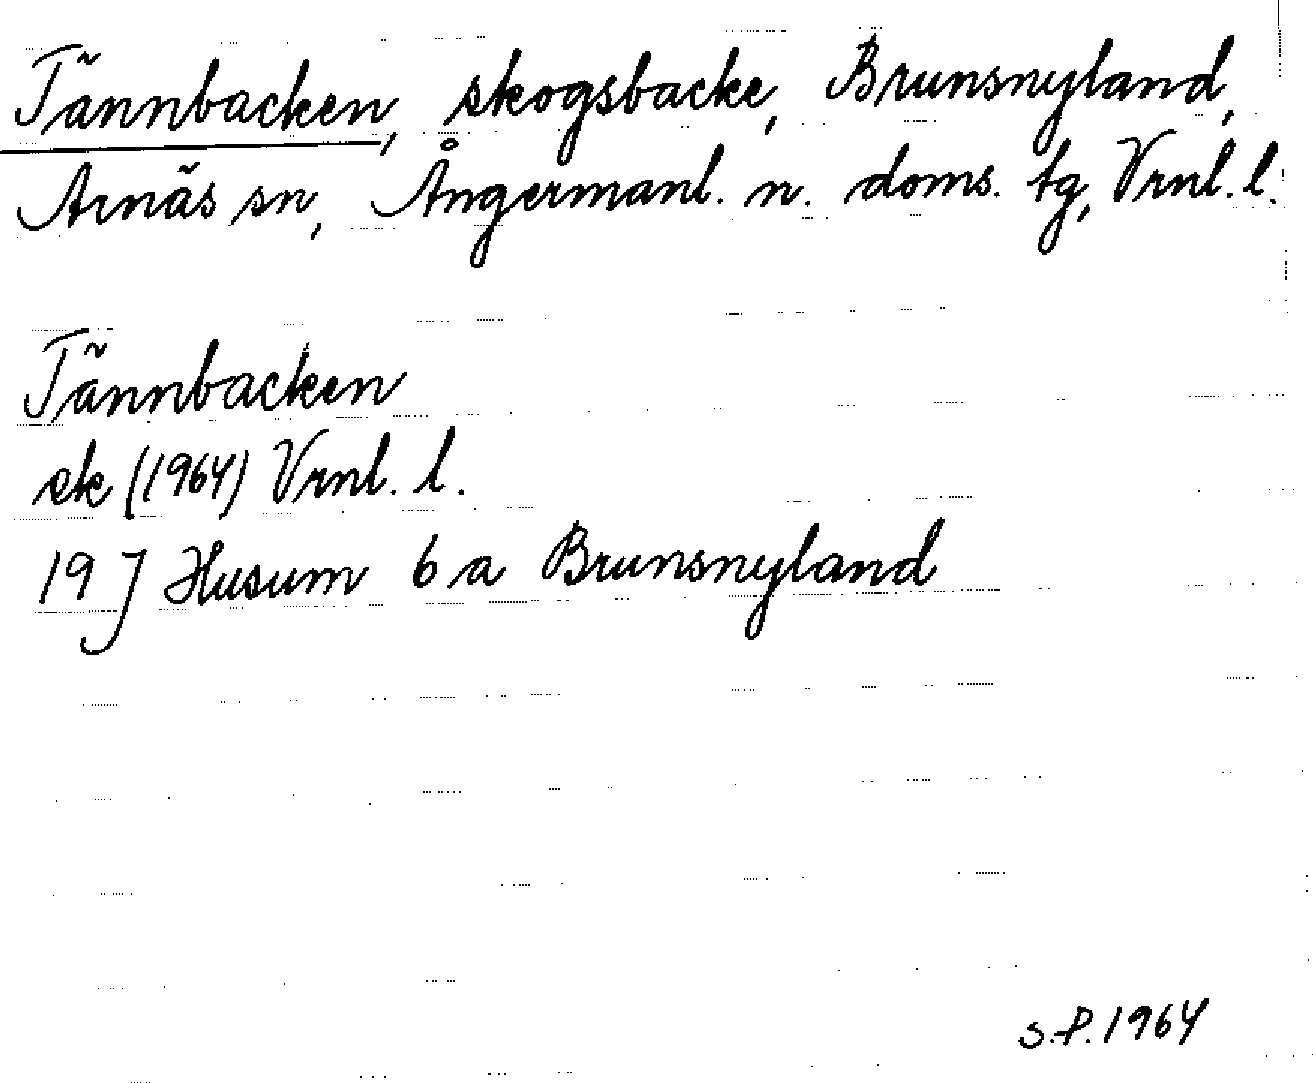 Tännbacken, skogsbacke, Brunsnyland,
Arnäs sn, Ångermanl. n. doms. tg, Vrnl. l.
Tännbacken
ek (1964) Vrnl. l.
19 J Husum 6 a Brunsnyland
S.P. 1964